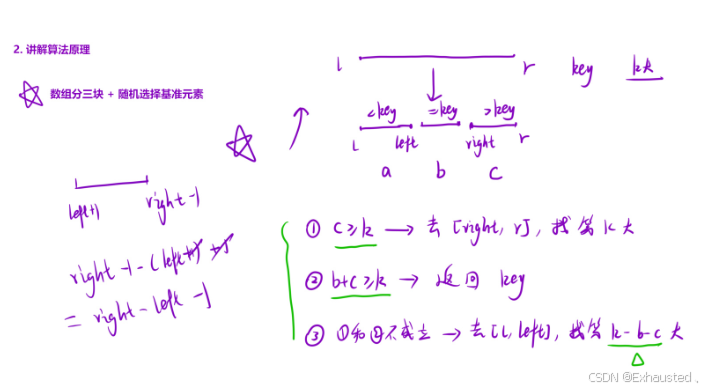 2. 讲解算法原理
数组分三块 + 随机选择基准元素
l r key k大
<key =key >key
l left right r
a b c
left+1 right-1
right-1-(left+1)+1
= right-left-1
① c≥k → 去[right, r], 找第k大
② b+c≥k → 返回 key
③ ①和②不成立 → 去[l, left], 找第k-b-c大
CSDN @Exhausted、